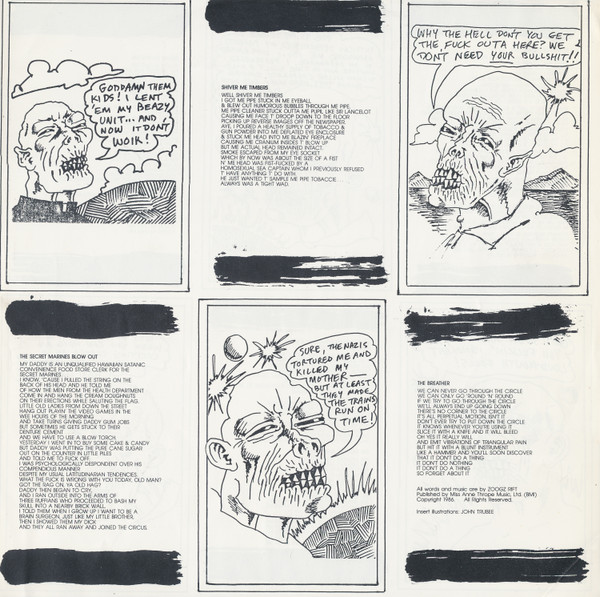 GODDAMN THEM
KIDS! I LENT
'EM MY BEAZY
UNIT... AND
NOW IT DON'T
WOIK!
SHIVER ME TIMBERS
WELL SHIVER ME TIMBERS
I GOT ME PIPE STUCK IN ME EYEBALL
& BLEW OUT HUMOROUS BUBBLES THROUGH ME PIPE
ME PIPE CLEANER STUCK OUTTA ME PUPIL LIKE SRI LANCELOT
CAUSING ME FACE T' DROOP DOWN TO THE FLOOR
PICKING UP REVERSE IMAGES OFF THE NEWSPAPER
AYE, I POURED A HEALTHY SUPPLY OF TOBACCO &
GUN POWDER INTO ME DEFLATED EYE ENCLOSURE
& STUCK ME HEAD INTO ME BLAZIN' FIREPLACE
CAUSING ME CRANIUM INSIDES T' BLOW UP
BUT ME ACTUAL HEAD REMAINED INTACT.
SMOKE ESCAPED FROM MY EYE SOCKET
WHICH BY NOW WAS ABOUT THE SIZE OF A FIST
N' ME HEAD WAS FIST-FUCKED BY A
HOMOSEXUAL SEA CAPTAIN WHOM I PREVIOUSLY REFUSED
T' HAVE ANYTHING T' DO WITH.
HE JUST WANTED T' SAMPLE ME PIPE TOBACCIE
ALWAYS WAS A TIGHT WAD.
WHY THE HELL DON'T YOU GET
THE FUCK OUTA HERE? WE
DON'T NEED YOUR BULLSHIT!!
THE SECRET MARINES BLOW OUT
MY DADDY IS AN UNQUALIFIED HAWAIIAN SATANIC
CONVENIENCE FOOD STORE CLERK FOR THE
SECRET MARINES
I KNOW, 'CAUSE I PULLED THE STRING ON THE
BACK OF HIS HEAD AND HE TOLD ME
OF HOW THE MEN FROM THE HEALTH DEPARTMENT
COME IN AND HANG THE CREAM DOUGHNUTS
ON THEIR ERECTIONS WHILE SALUTING THE FLAG.
LITTLE OLD LADIES FROM DOWN THE STREET
HANG OUT PLAYIN' THE VIDEO GAMES IN THE
WEE HOURS OF THE MORNING
AND TAKE TURNS GIVING DADDY GUM JOBS
BUT SOMETIMES HE GETS STUCK TO THEIR
DENTURE CEMENT
AND WE HAVE TO USE A BLOW TORCH
YESTERDAY I WENT IN TO BUY SOME CAKE & CANDY
BUT DADDY WAS PUTTING THE PURE CANE SUGAR
OUT ON THE COUNTER IN LITTLE PILES
AND TOLD ME TO FUCK OFF
I WAS PSYCHOLOGICALLY DESPONDENT OVER HIS
COMPENDIOUS MANNER
DESPITE MY USUAL LATITUDINARIAN TENDENCIES.
WHAT THE FUCK IS WRONG WITH YOU TODAY, OLD MAN?
GOT THE RAG ON, YA OLD HAG?
DADDY THEN BEGAN TO CRY,
AND I RAN OUTSIDE INTO THE ARMS OF
THREE RUFFIANS WHO PROCEEDED TO BASH MY
SKULL INTO A NEARBY BRICK WALL.
I TOLD THEM WHEN I GROW UP I WANT TO BE A
BRAIN SURGEON, JUST LIKE MY LITTLE BROTHER.
THEN I SHOWED THEM MY DICK
AND THEY ALL RAN AWAY AND JOINED THE CIRCUS.
SURE, THE NAZIS
TORTURED ME AND
KILLED MY
MOTHER —
BUT AT LEAST
THEY MADE
THE TRAINS
RUN ON
TIME!
THE BREATHER
WE CAN NEVER GO THROUGH THE CIRCLE
WE CAN ONLY GO 'ROUND 'N' ROUND
IF WE TRY TO GO THROUGH THE CIRCLE
WE'LL ALWAYS END UP GOING DOWN
THERE'S NO CORNER TO THE CIRCLE
IT'S ALL PERPETUAL MOTION, ISN'T IT
DON'T EVER TRY TO PUT DOWN THE CIRCLE
IT KNOWS WHENEVER YOU'RE USING IT
SLICE IT WITH A KNIFE AND IT WILL BLEED
OH YES IT REALLY WILL
AND EMIT VIBRATIONS OF TRIANGULAR PAIN
BUT HIT IT WITH A BLUNT INSTRUMENT
LIKE A HAMMER AND YOU'LL SOON DISCOVER
THAT IT DON'T DO A THING
IT DON'T DO NOTHING
IT DON'T DO A THING
SO FORGET ABOUT IT
All words and music are by ZOOGZ RIFT
Published by Miss Anne Thrope Music, Ltd. (BMI)
Copyright 1986. All Rights Reserved.
Insert Illustrations: JOHN TRUBEE